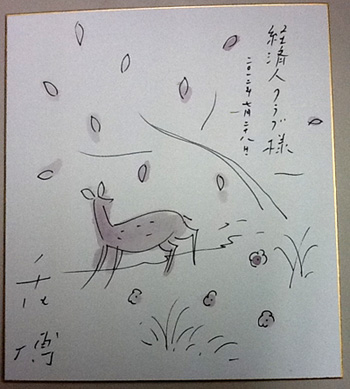 経済人クラブ様
二〇一二年七月二十八日
千住博